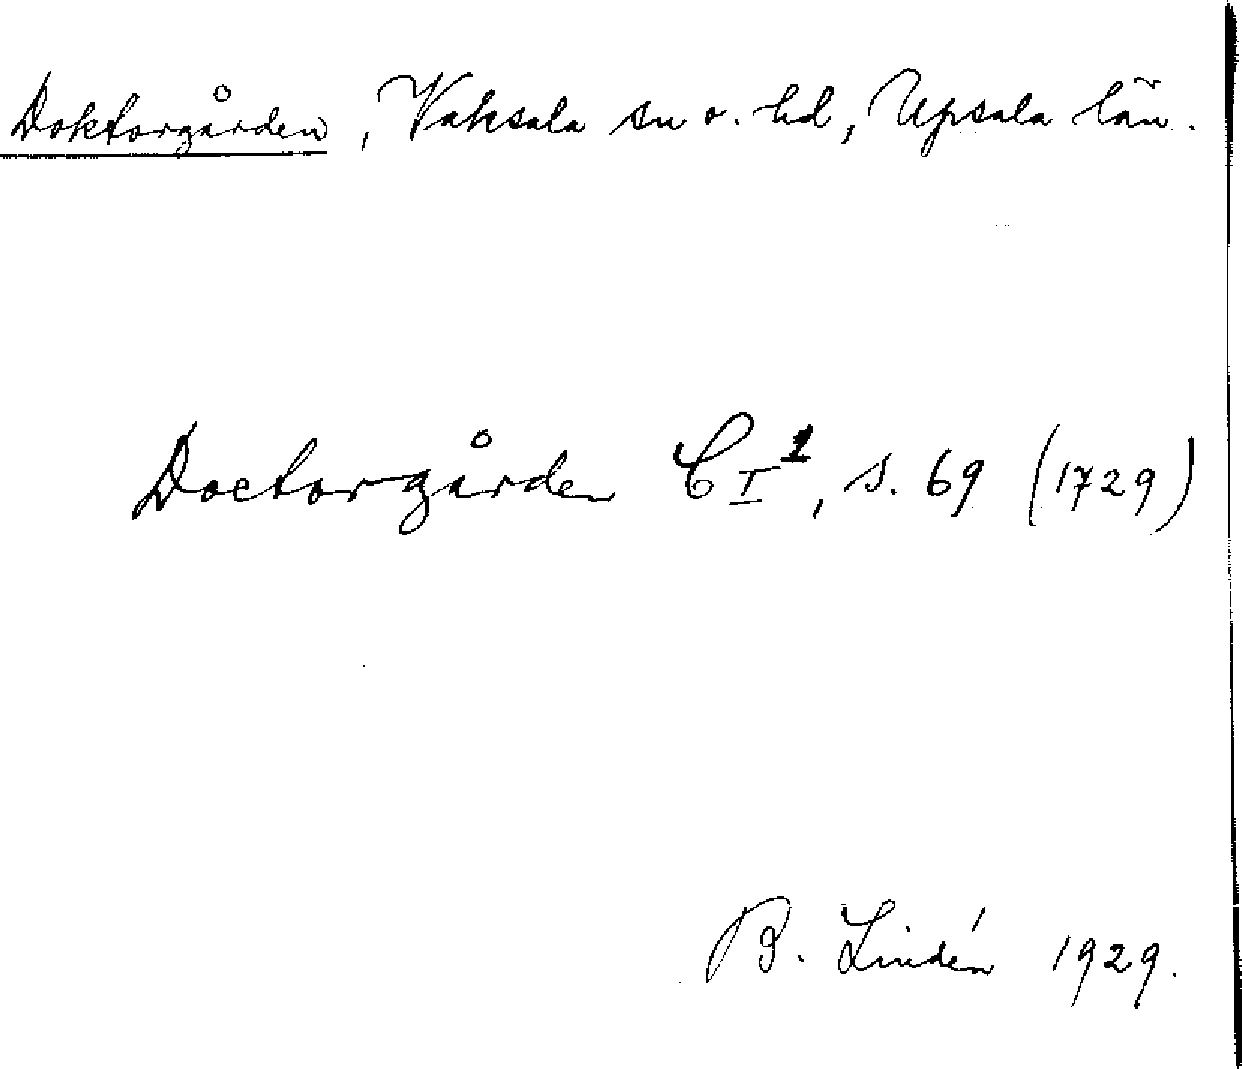 Doktorgården, Vaksala sn o. hd, Upsala län.
Doctorgården C I², s. 69 (1729)
B. Lindén 1929.